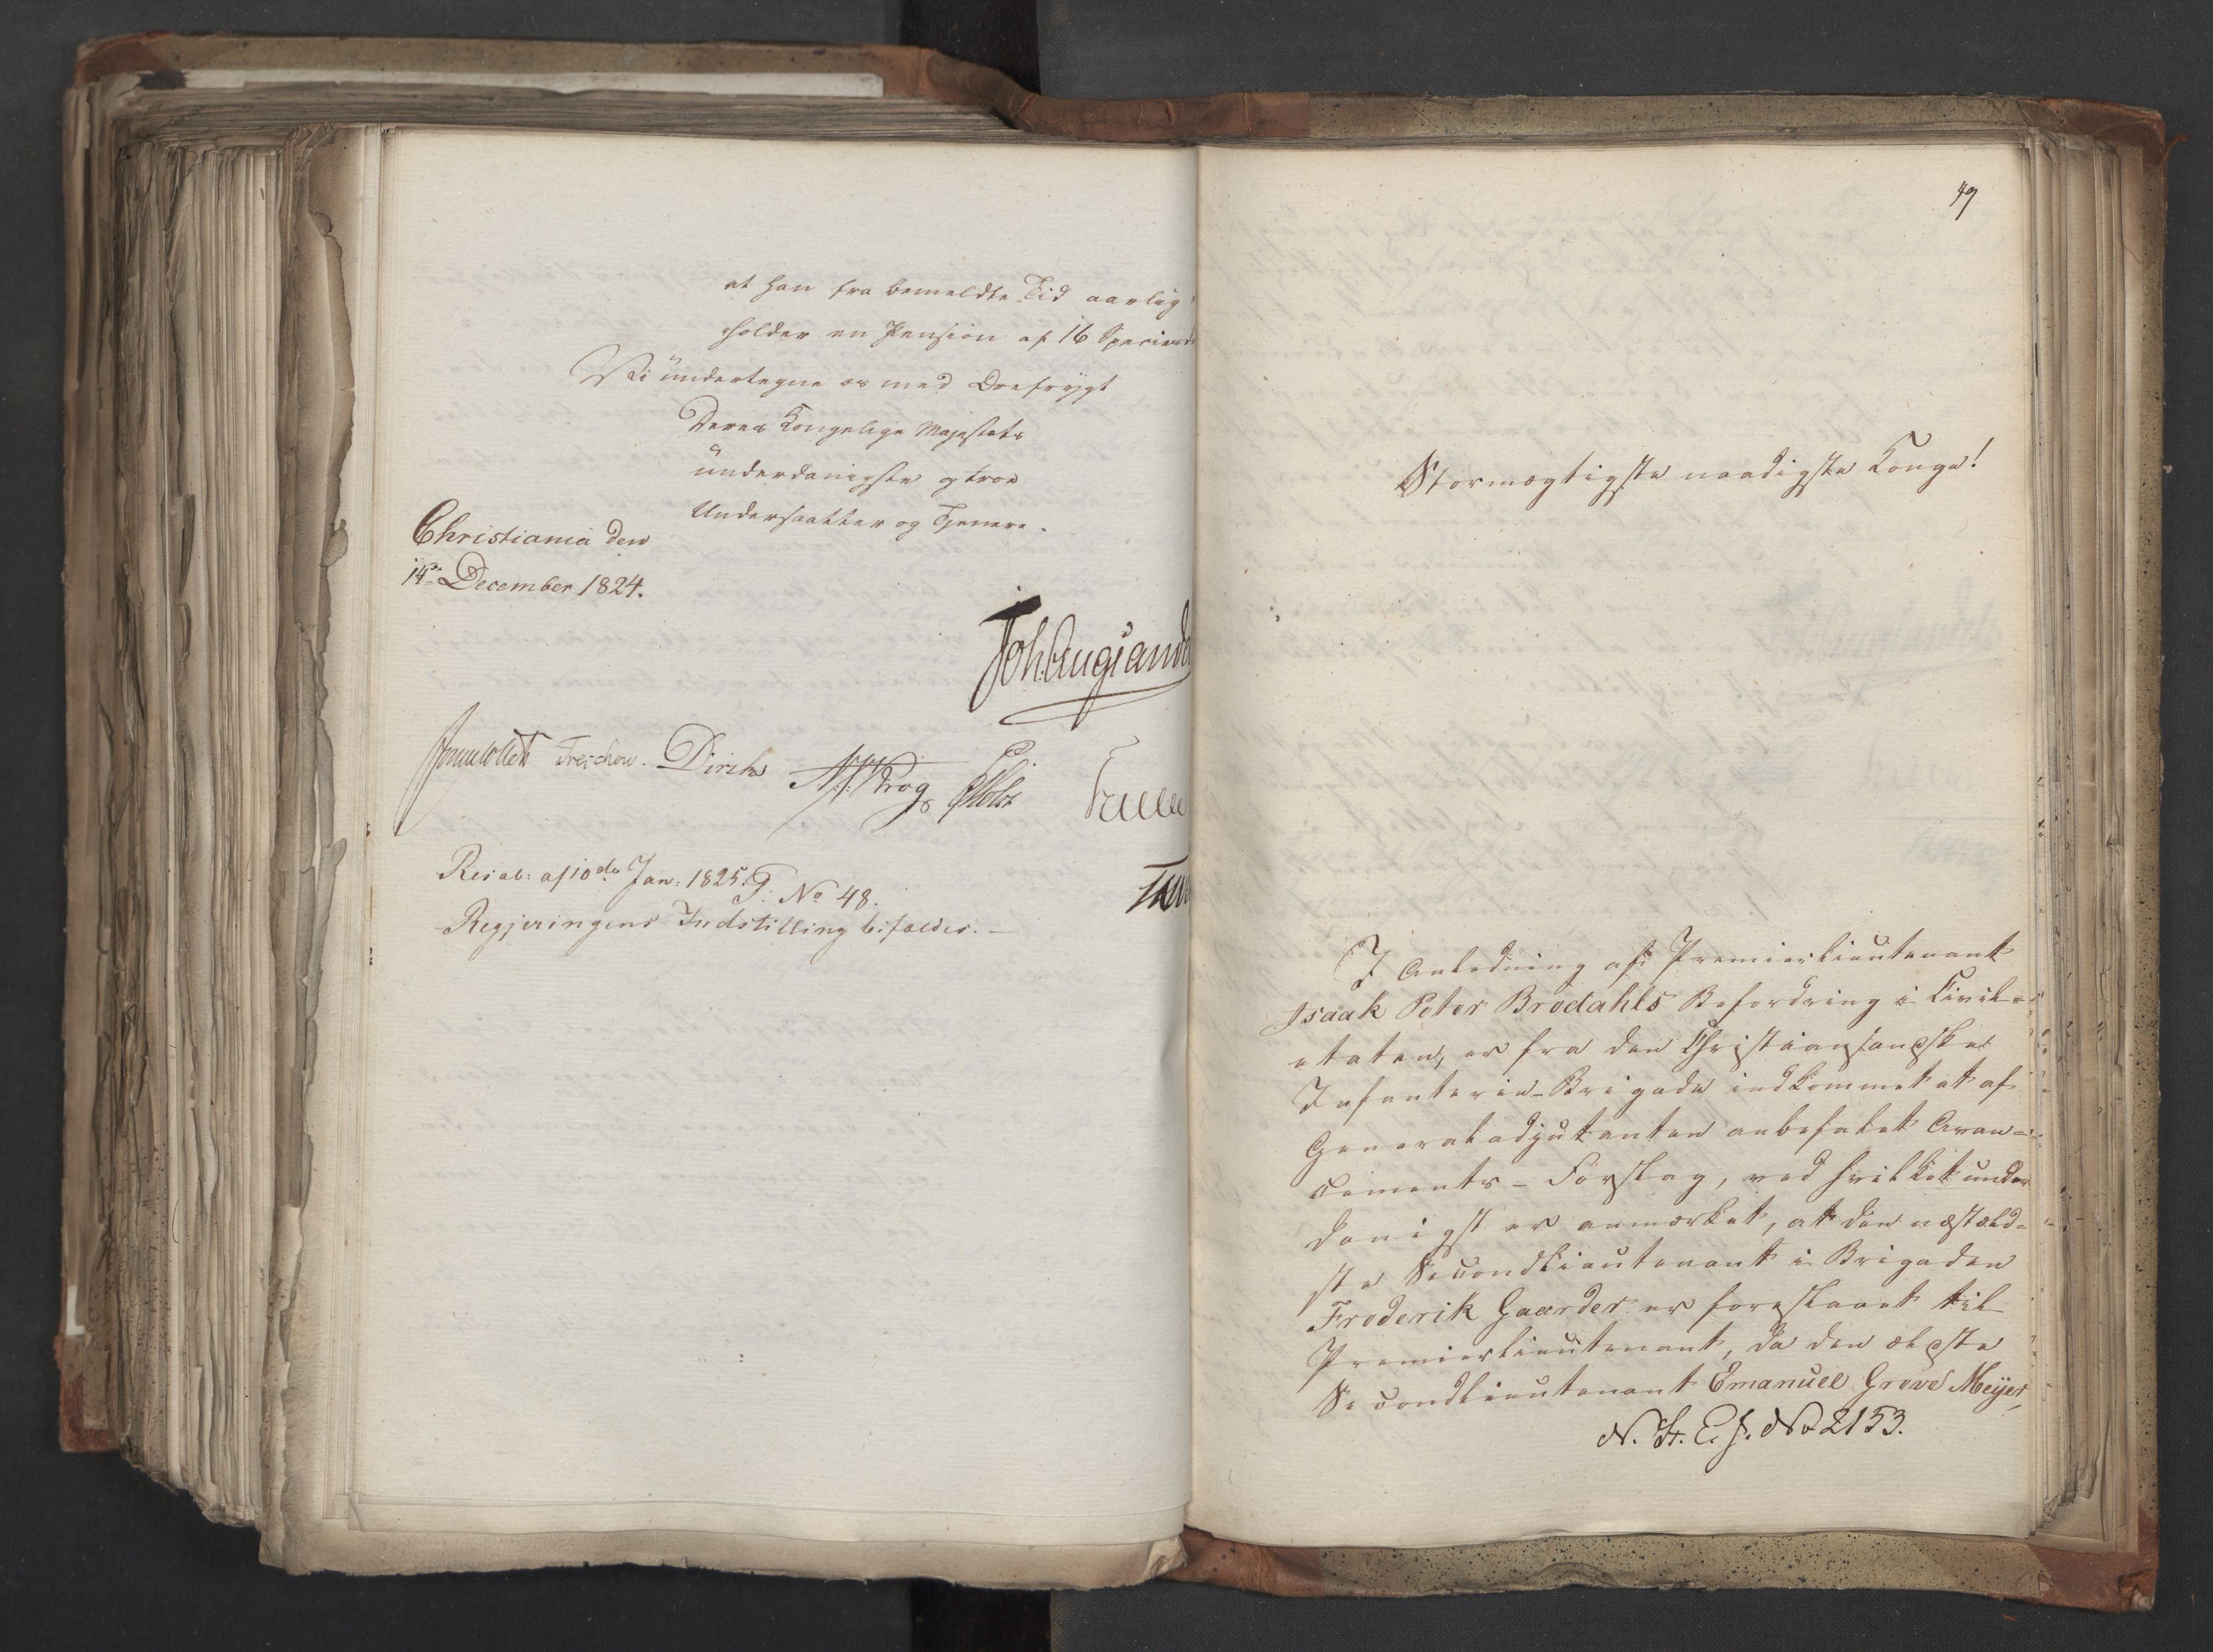 at han fra bemeldte Tid aarlig
holder en Pension af 16 Specierd
Vi undertegne os med Ærefrygt
Deres Kongelige Majestæts
underdanigste og troe
Undersaatter og Tjenere.
Christiania den
14de December 1824.
Joh. Aug: Sande
Jonas Collett Treschow. Diriks Krog PMotz
Resol: af 10de Jan: 1825. P. No 48.
Regjeringens Indstilling bifaldes. —
49
Stormægtigste naadigste Konge!
I Anledning af Premierlieutenant
Isaak Peter Brodahls Befordring i Civil-
etaten, er fra den Christiansandske
Infanterie-Brigade indkommet et af
Generaladjutanten anbefalet Avan-
cements-Forslag, ved hvilket under
danigst er anmærket, at den næstæld-
ste Secondlieutenant i Brigaden
Frederik Gaarder er foreslaaet til
Premierlieutenant, da den ældste
Secondlieutenant Emanuel Grove Meyer,
N. St. E. J. No 2153.